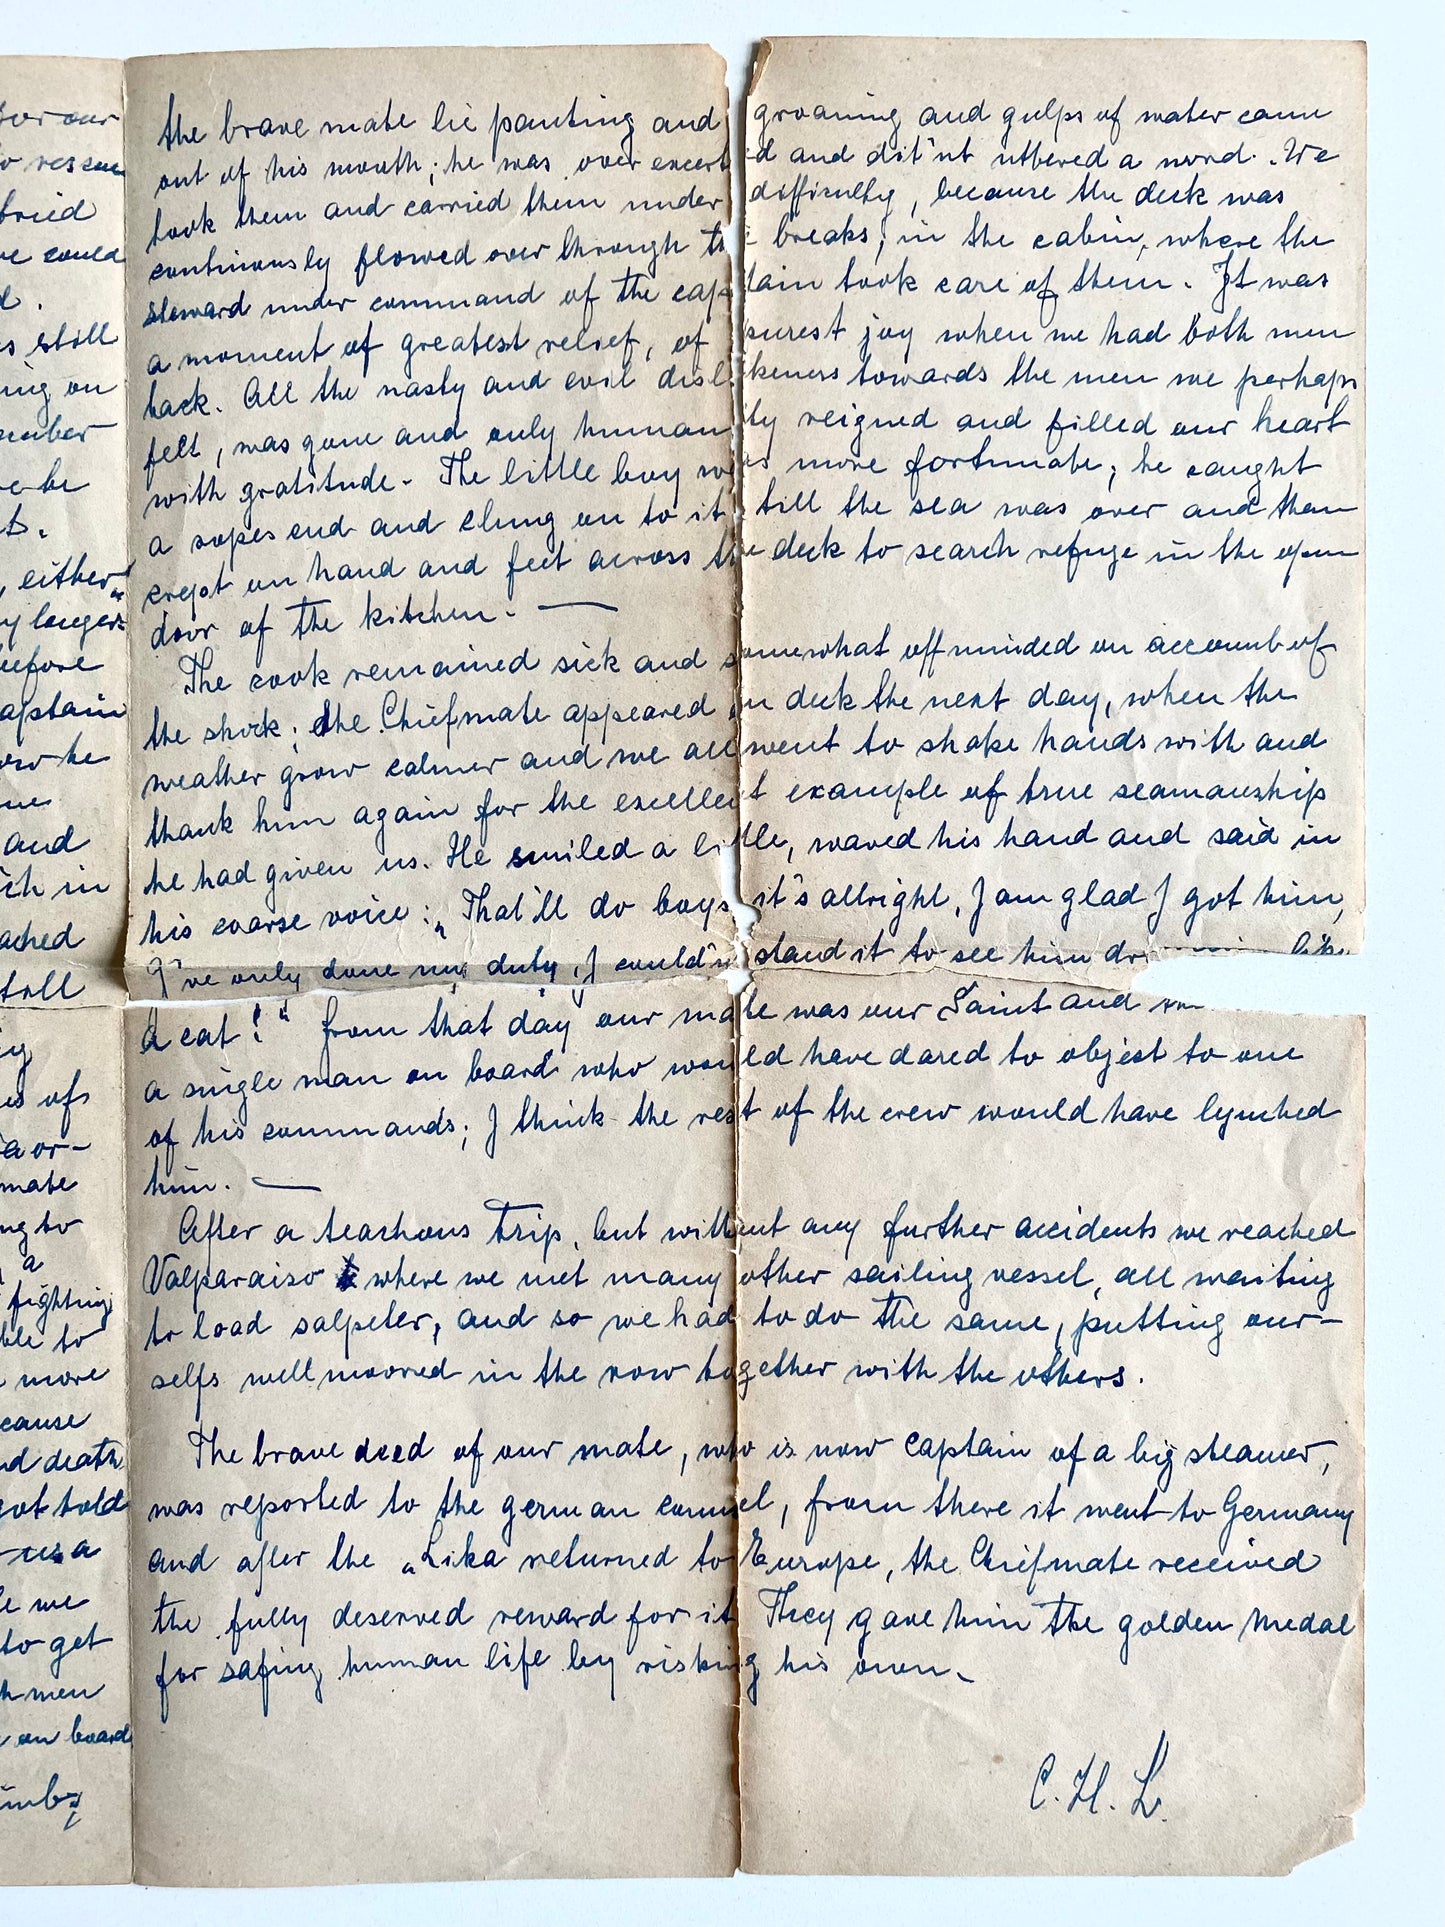 for our
to rescue
tried
we could
d.
s still
ing on
ember
re be
t.
, either
y longer
before
aptain
ow he
me
and
ich in
ached
till
ng
es of
a or-
mate
ng to
a
fighting
ble to
more
cause
nd death
got told
us a
le we
to get
h men
on board
imbs,
the brave mate lie panting and groaning and gulps of water came
out of his mouth; he was over exerted and dit'nt uttered a word. We
took them and carried them under difficulty, because the deck was
continously flowed over through the breaks, in the cabin, where the
steward under command of the captain took care of them. It was
a moment of greatest relief, of purest joy when we had both men
back. All the nasty and evil dislikeness towards the men we perhaps
felt, was gone and only humanity reigned and filled our heart
with gratitude. The little boy was more fortunate; he caught
a ropes end and clung on to it till the sea was over and than
crept on hand and feet across the deck to search refuge in the open
door of the kitchen. —
The cook remained sick and somewhat off minded on account of
the shock; the Chiefmate appeared on deck the next day, when the
weather grow calmer and we all went to shake hands with and
thank him again for the excellent example of true seamanship
he had given us. He smiled a little, waved his hand and said in
his coarse voice: „That'll do boys, it's allright, I am glad I got him,
I've only done my duty, I could'nt stand it to see him like
a cat!" From that day our mate was our Saint and
a single man on board who would have dared to object to one
of his commands; I think the rest of the crew would have lynched
him. —
After a teachous trip, but without any further accidents we reached
Valparaiso where we met many other sailing vessel, all waiting
to load salpeter, and so we had to do the same, putting our-
selfs well moored in the row together with the others.
The brave deed of our mate, who is now captain of a big steamer,
was reported to the german consul, from there it went to Germany
and after the „Lika returned to Europe, the Chiefmate received
the fully deserved reward for it They gave him the golden Medal
for safing human life by risking his own.
C. H. L.